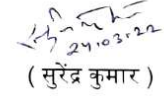 24.03.22
( सुरेंद्र कुमार )